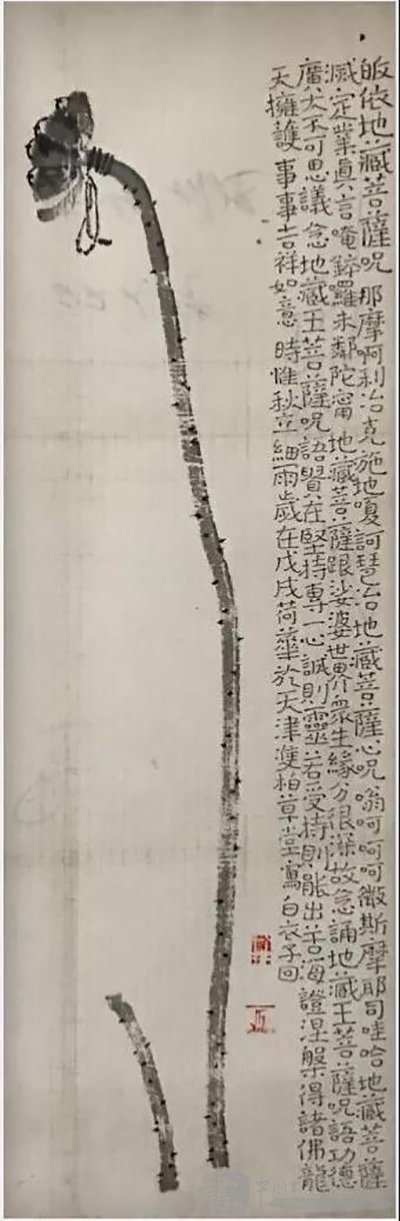 皈依地藏菩薩咒那摩啊利治克施地嗄訶琶治地藏菩薩心咒嗡呵呵呵微斯摩耶司哇哈地藏菩薩
滅定業真言唵鉢囉末鄰陀甯地藏菩薩跟娑婆世界眾生緣分很深故急誦地藏王菩薩咒語功德
廣大不可思議念地藏王菩薩咒語貴在堅持專一心誠則靈若受持則能出苦海證涅槃得諸佛龍
天擁護事事吉祥如意時惟秋立細雨歲在戊戌荷華於天津雙柏草堂寫白衣子回